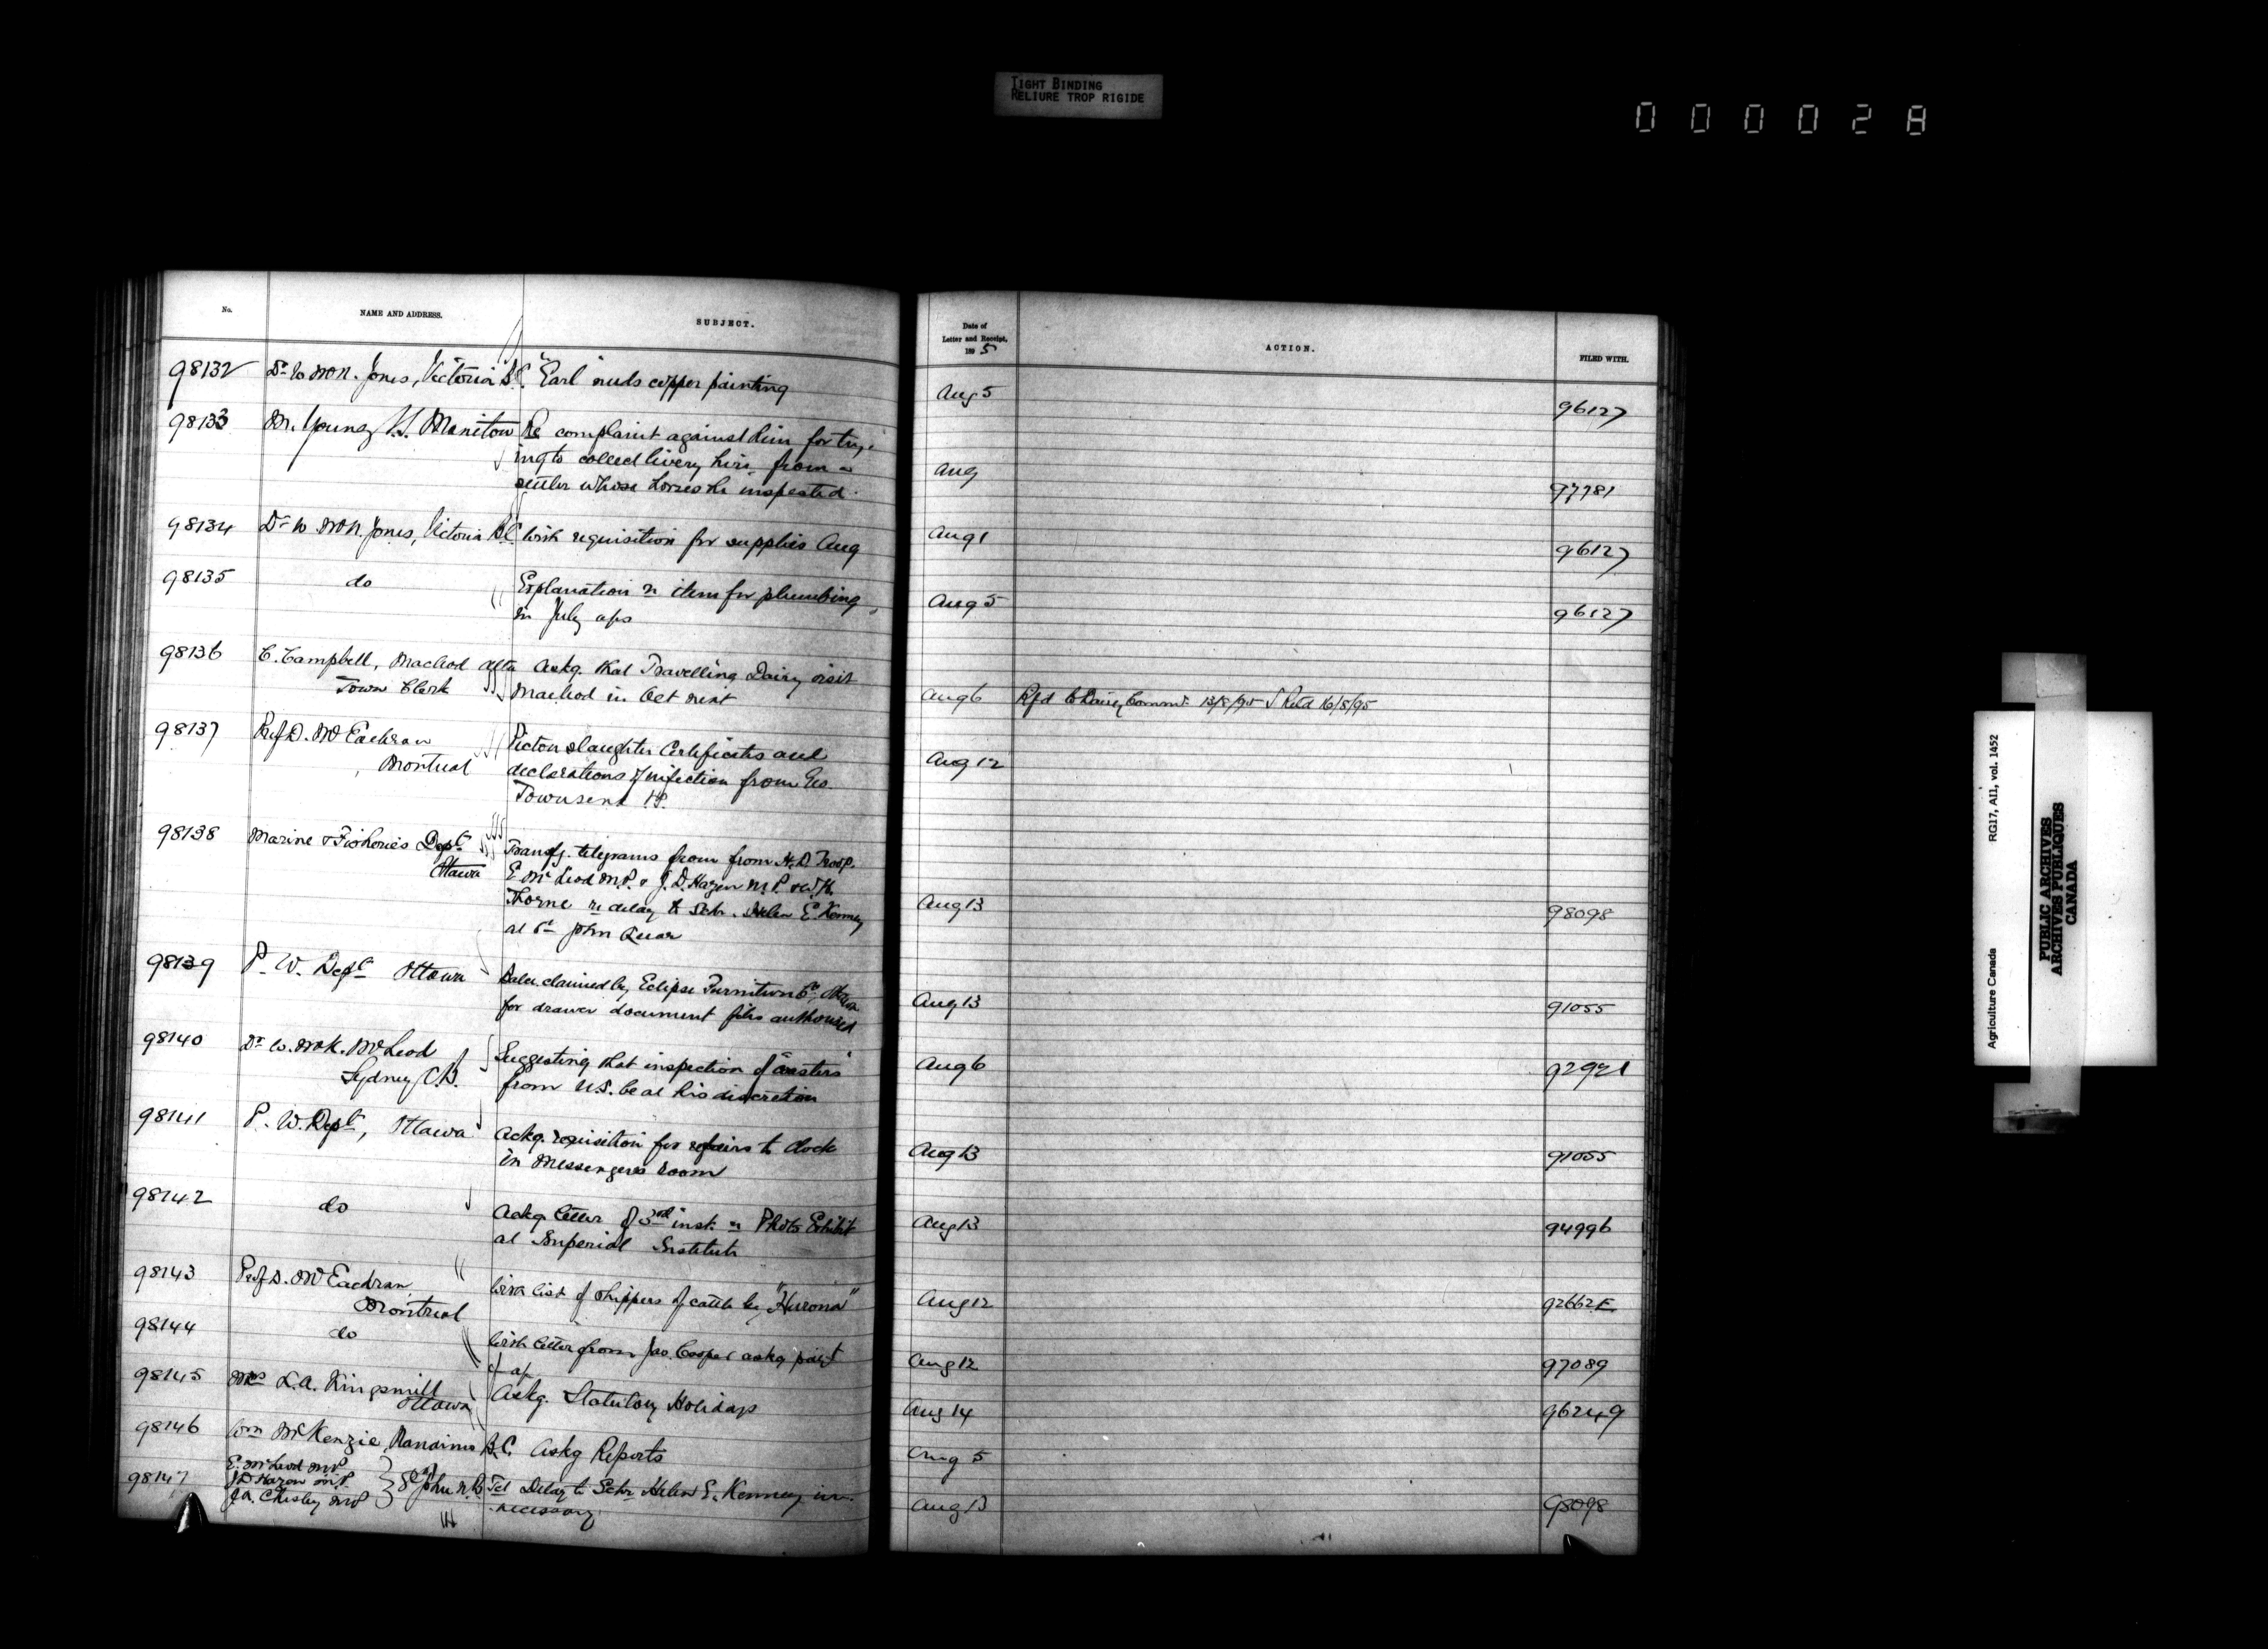 TIGHT BINDING
RELIURE TROP RIGIDE
000028
No.
NAME AND ADDRESS.
SUBJECT.
Date of
Letter and Receipt,
1895
ACTION.
FILED WITH.
98132 Dr W McN. Jones, Victoria B.C. "Earl" needs copper painting Aug 5 96127
98133 M. Young V.S. Manitou Re complaint against him for try-
ing to collect livery hire from a
settler whose horses he inspected. Aug 97781
98134 Dr W McN. Jones, Victoria B.C. With requisition for supplies Aug Aug 1 96127
98135 do Explanation re item for plumbing
in July a/cs Aug 5 96127
98136 C. Campbell, Macleod Alta Askg. that Travelling Dairy visit
Town Clerk Macleod in Oct next Aug 6 Rfd to Dairy Commr 13/8/95 Retd 16/8/95
98137 Prof D. McEachran Picton slaughter Certificates and
Montreal declarations of infection from Geo.
Townsend V.S. Aug 12
98138 Marine & Fisheries Dept Transfg. telegrams from from H.D. Troop.
Ottawa E McLeod M.P. & J.D. Hazen M.P. & W.H.
Thorne re delay to Schr. Helen E. Kenney Aug 13 98098
at St John Quar
98139 P. W. Dept Ottawa Balce. claimed by Eclipse Furniture Co Ottawa
for drawer document files authorized Aug 13 91055
98140 Dr W. McK. McLeod Suggesting that inspection of "coasters"
Sydney C.B. from U.S. be at his discretion Aug 6 92921
98141 P. W. Dept, Ottawa Ackg. requisition for repairs to clock
in Messengers room Aug 13 91055
98142 do Ackg letter of 3rd inst. re Photo Exhibit
at Imperial Institute Aug 13 94996
98143 Prof D. McEachran, With list of shippers of cattle by "Hurona"
Montreal Aug 12 92662 E
98144 do With letter from Jas. Cooper askg paiyt
of a/c Aug 12 97089
98145 Mrs L.A. Kingsmill
Ottawa Askg. Statutory Holidays Aug 14 96249
98146 Wm McKenzie, Nanaimo B.C. Askg Reports Aug 5
98147 E. McLeod MP
J.D. Hazen M.P. St John N.B. Tel Delay to Schr Helen E. Kenney un-
J.A. Chesley MP necessary. Aug 13 98098
Agriculture Canada RG17, AI1, vol. 1452
PUBLIC ARCHIVES
ARCHIVES PUBLIQUES
CANADA